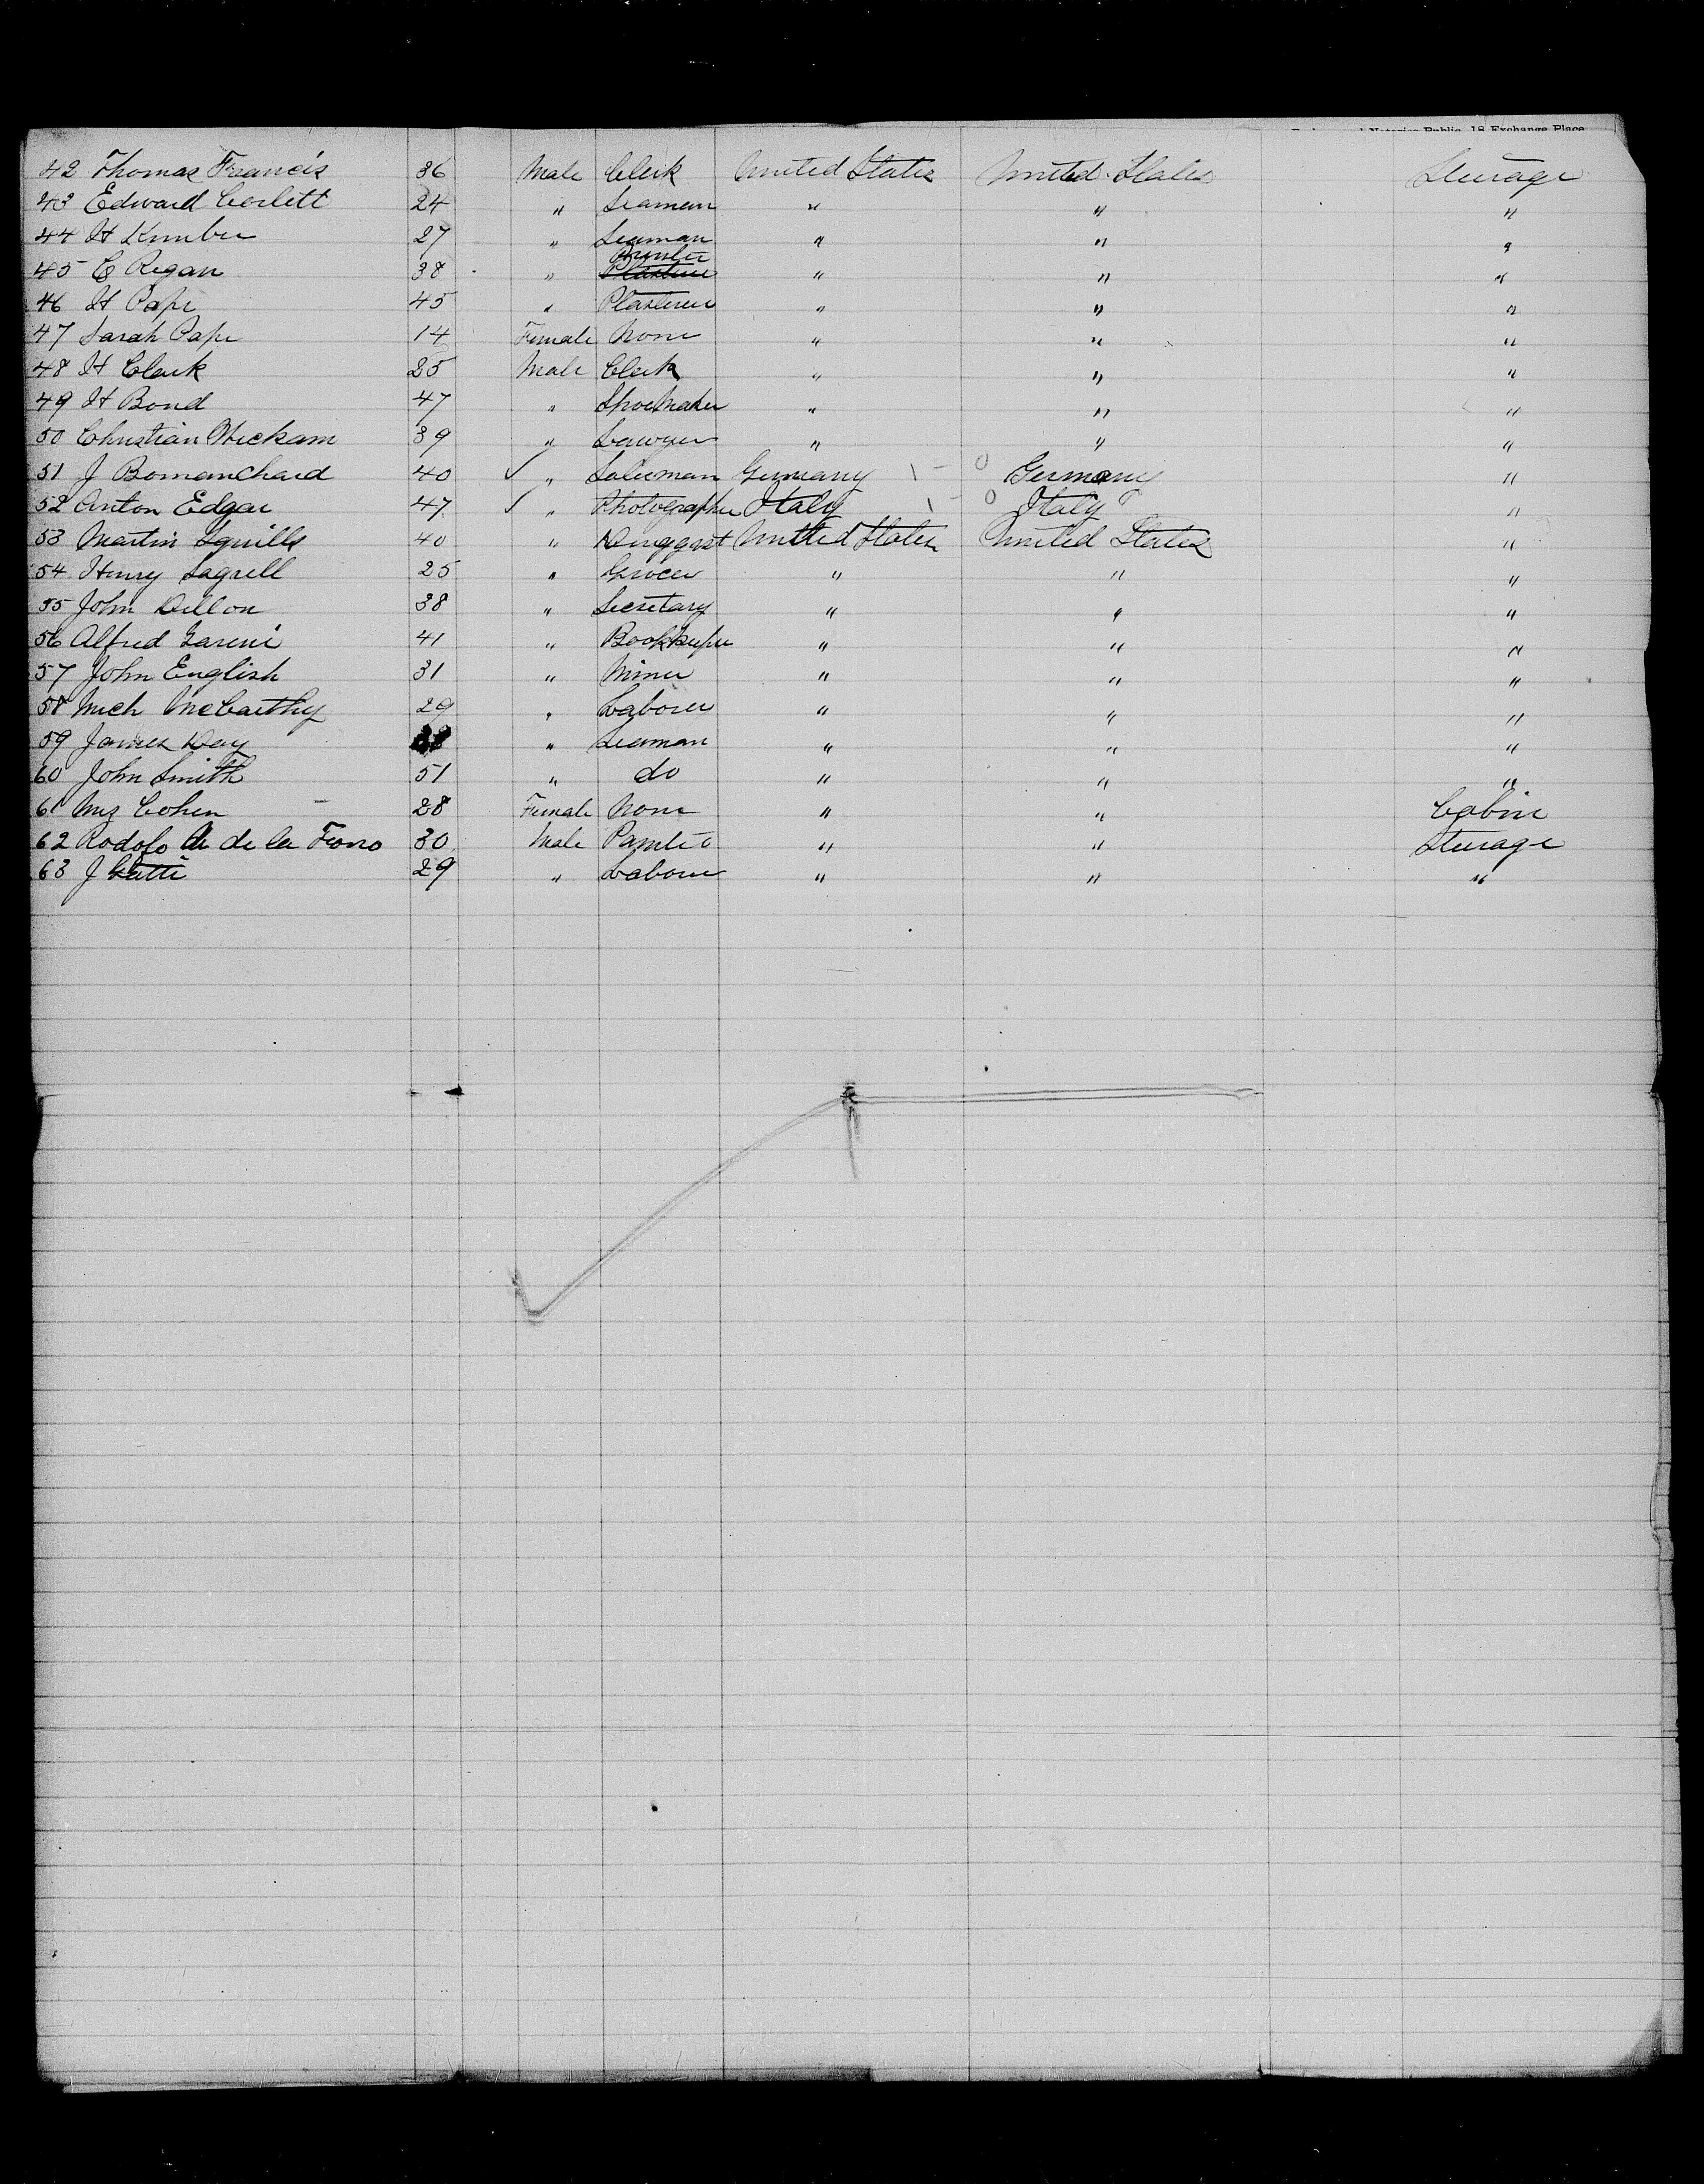 Notaries Public, 18 Exchange Place
42 Thomas Francis 36 Male Clerk United States United States Steerage
43 Edward Corlett 24 " Seaman " " "
44 H 27 " Seaman " " "
Printer
45 E Regan 38 " Plasterer " " "
46 H Pape 45 " Plasterer " " "
47 Sarah Pape 14 Female None " " "
48 H Clark 25 Male Clerk " " "
49 H Bond 47 " Shoemaker " " "
50 Christian Wickam 39 " Lawyer " " "
51 J 40 " Salesman Germany Germany "
52 Anton Edgar 47 " Photographer Italy Italy "
53 Martin Squills 40 " Druggist United States United States "
54 Henry Sagrell 25 " Grocer " " "
55 John Dillon 38 " Secretary " " "
56 Alfred 41 " Bookkeeper " " "
57 John English 31 " Miner " " "
58 Mich McCarthy 29 " Laborer " " "
59 James Day " Seaman " " "
60 John Smith 51 " do " " "
61 Mrs Cohen 28 Female None " " Cabin
62 Rodolfo de la 30 Male Painter " " Steerage
63 J 29 " Laborer " " "